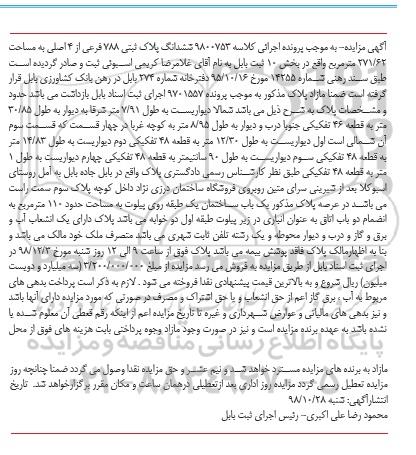 آگهی مزایده- به موجب پرونده اجرائی کلاسه ۹۸۰۰۷۵۳ ششدانگ پلاک ثبتی ۷۸۸ فرعی از ۴ اصلی به مساحت
۲۷۱/۶۲ مترمربع واقع در بخش ۱۰ ثبت بابل به نام آقای غلامرضا کریمی اسبوئی ثبت و صادر گردیده است
طبق سند رهنی شماره ۱۴۲۵۵ مورخ ۹۵/۱۰/۱۶ دفترخانه شماره ۲۷۴ بابل در رهن بانک کشاورزی بابل قرار
گرفته است ضمنا مازاد پلاک مذکور به موجب پرونده ۹۷۰۱۵۵۷ اجرای ثبت اسناد بابل بازداشت می باشد حدود
و مشخصات پلاک به شرح ذیل می باشد شمالا دیواریست به طول ۷/۹۱ متر شرقا به دیوار به طول ۳۰/۸۵
متر به قطعه ۴۶ تفکیکی جنوبا درب و دیوار به طول ۸/۹۵ متر به کوچه غربا در چهار قسمت که قسمت سوم
آن شمالی است اول دیواریست به طول ۱۲/۳۰ متر به قطعه ۴۸ تفکیکی دوم دیواریست به طول ۱۴/۸۳ متر
به قطعه ۴۸ تفکیکی سوم دیواریست به طول ۹۰ سانتیمتر به قطعه ۴۸ تفکیکی چهارم دیواریست به طول ۱
متر به قطعه ۴۸ تفکیکی طبق نظر کارشناس رسمی دادگستری پلاک واقع در بابل جاده بابل به آمل روستای
اسبو کلا بعد از شیرینی سرای متین روبروی فروشگاه ساختمان درزی نژاد داخل کوچه پلاک سوم سمت راست
می باشد در عرصه پلاک مذکور یک باب ساختمان یک طبقه روی پیلوت به مساحت حدود ۱۱۰ مترمربع به
انضمام دو باب اتاق به عنوان انباری در زیر پیلوت طبقه اول دو خوابه می باشد پلاک دارای یک انشعاب آب و
برق و گاز و درب و دیوار محوطه و یک رشته تلفن ثابت شهری می باشد متصرف ملک خود مالک می باشد و
بنا به اظهارمالک پلاک فاقد پوشش بیمه می باشد پلاک فوق از ساعت ۹ الی ۱۲ روز شنبه مورخ ۹۸/۱۲/۳ در
اجرای ثبت اسناد بابل از طریق مزایده به فروش می رسد مزایده از مبلغ ۳/۲۰۰/۰۰۰/۰۰۰ (سه میلیارد و دویست
میلیون) ریال شروع و به بالاترین قیمت پیشنهادی نقدا فروخته می شود . لازم به ذکر است پرداخت بدهی های
مربوط به آب ، برق گاز اعم از حق انشعاب و یا حق اشتراک و مصرف در صورتی که مورد مزایده دارای آنها باشد
و نیز بدهی های مالیاتی و عوارض شهرداری و غیره تا تاریخ مزایده اعم از اینکه رقم قطعی آن معلوم شده یا
نشده باشد به عهده برنده مزایده است و نیز در صورت وجود مازاد وجوه پرداختی بابت هزینه های فوق از محل
مازاد به برنده های مزایده مسترد خواهد شد و نیم عشر و حق مزایده نقدا وصول می گردد ضمنا چنانچه روز
مزایده تعطیل رسمی گردد مزایده روز اداری بعد ازتعطیلی درهمان ساعت و مکان مقرر برگزارخواهد شد. تاریخ
انتشارآگهی: شنبه ۹۸/۱۰/۲۸
محمود رضا علی اکبری- رئیس اجرای ثبت بابل
پایگاه اطلاع رسانی مناقصه و مزایده